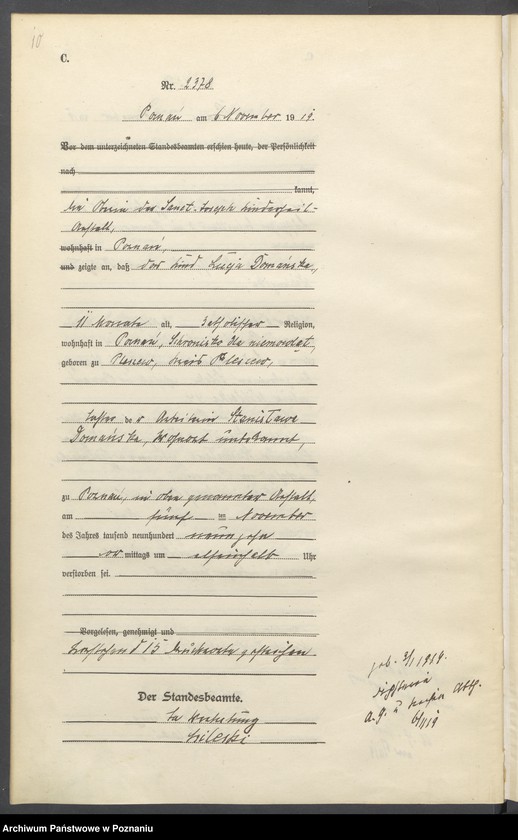 10
C.
Nr. 2378
Poznań am 6 November 1919.
Vor dem unterzeichneten Standesbeamten erschien heute, der Persönlichkeit
nach
kannt,
die Oberin der Sanct. Joseph Kinderheil-
Anstalt,
wohnhaft in Poznań,
und zeigte an, daß das Kind Lucja Domańska,
11 Monate alt, katholischer Religion,
wohnhaft in Poznań, Schronisko dla niemowląt,
geboren zu Pleszew, Kreis Pleszew,
Tochter der Arbeiterin Stanisława
Domańska, Wohnort unbekannt,
zu Poznań, in oben genannter Anstalt,
am fünf ten November
des Jahres tausend neunhundert neunzehn
vor mittags um elfeinhalb Uhr
verstorben sei.
Vorgelesen, genehmigt und
Vorstehend 15 Druckworte gestrichen
Der Standesbeamte.
In Vertretung
geb. 3/1 1919.
a. g. u
6/11 19
Archiwum Państwowe w Poznaniu